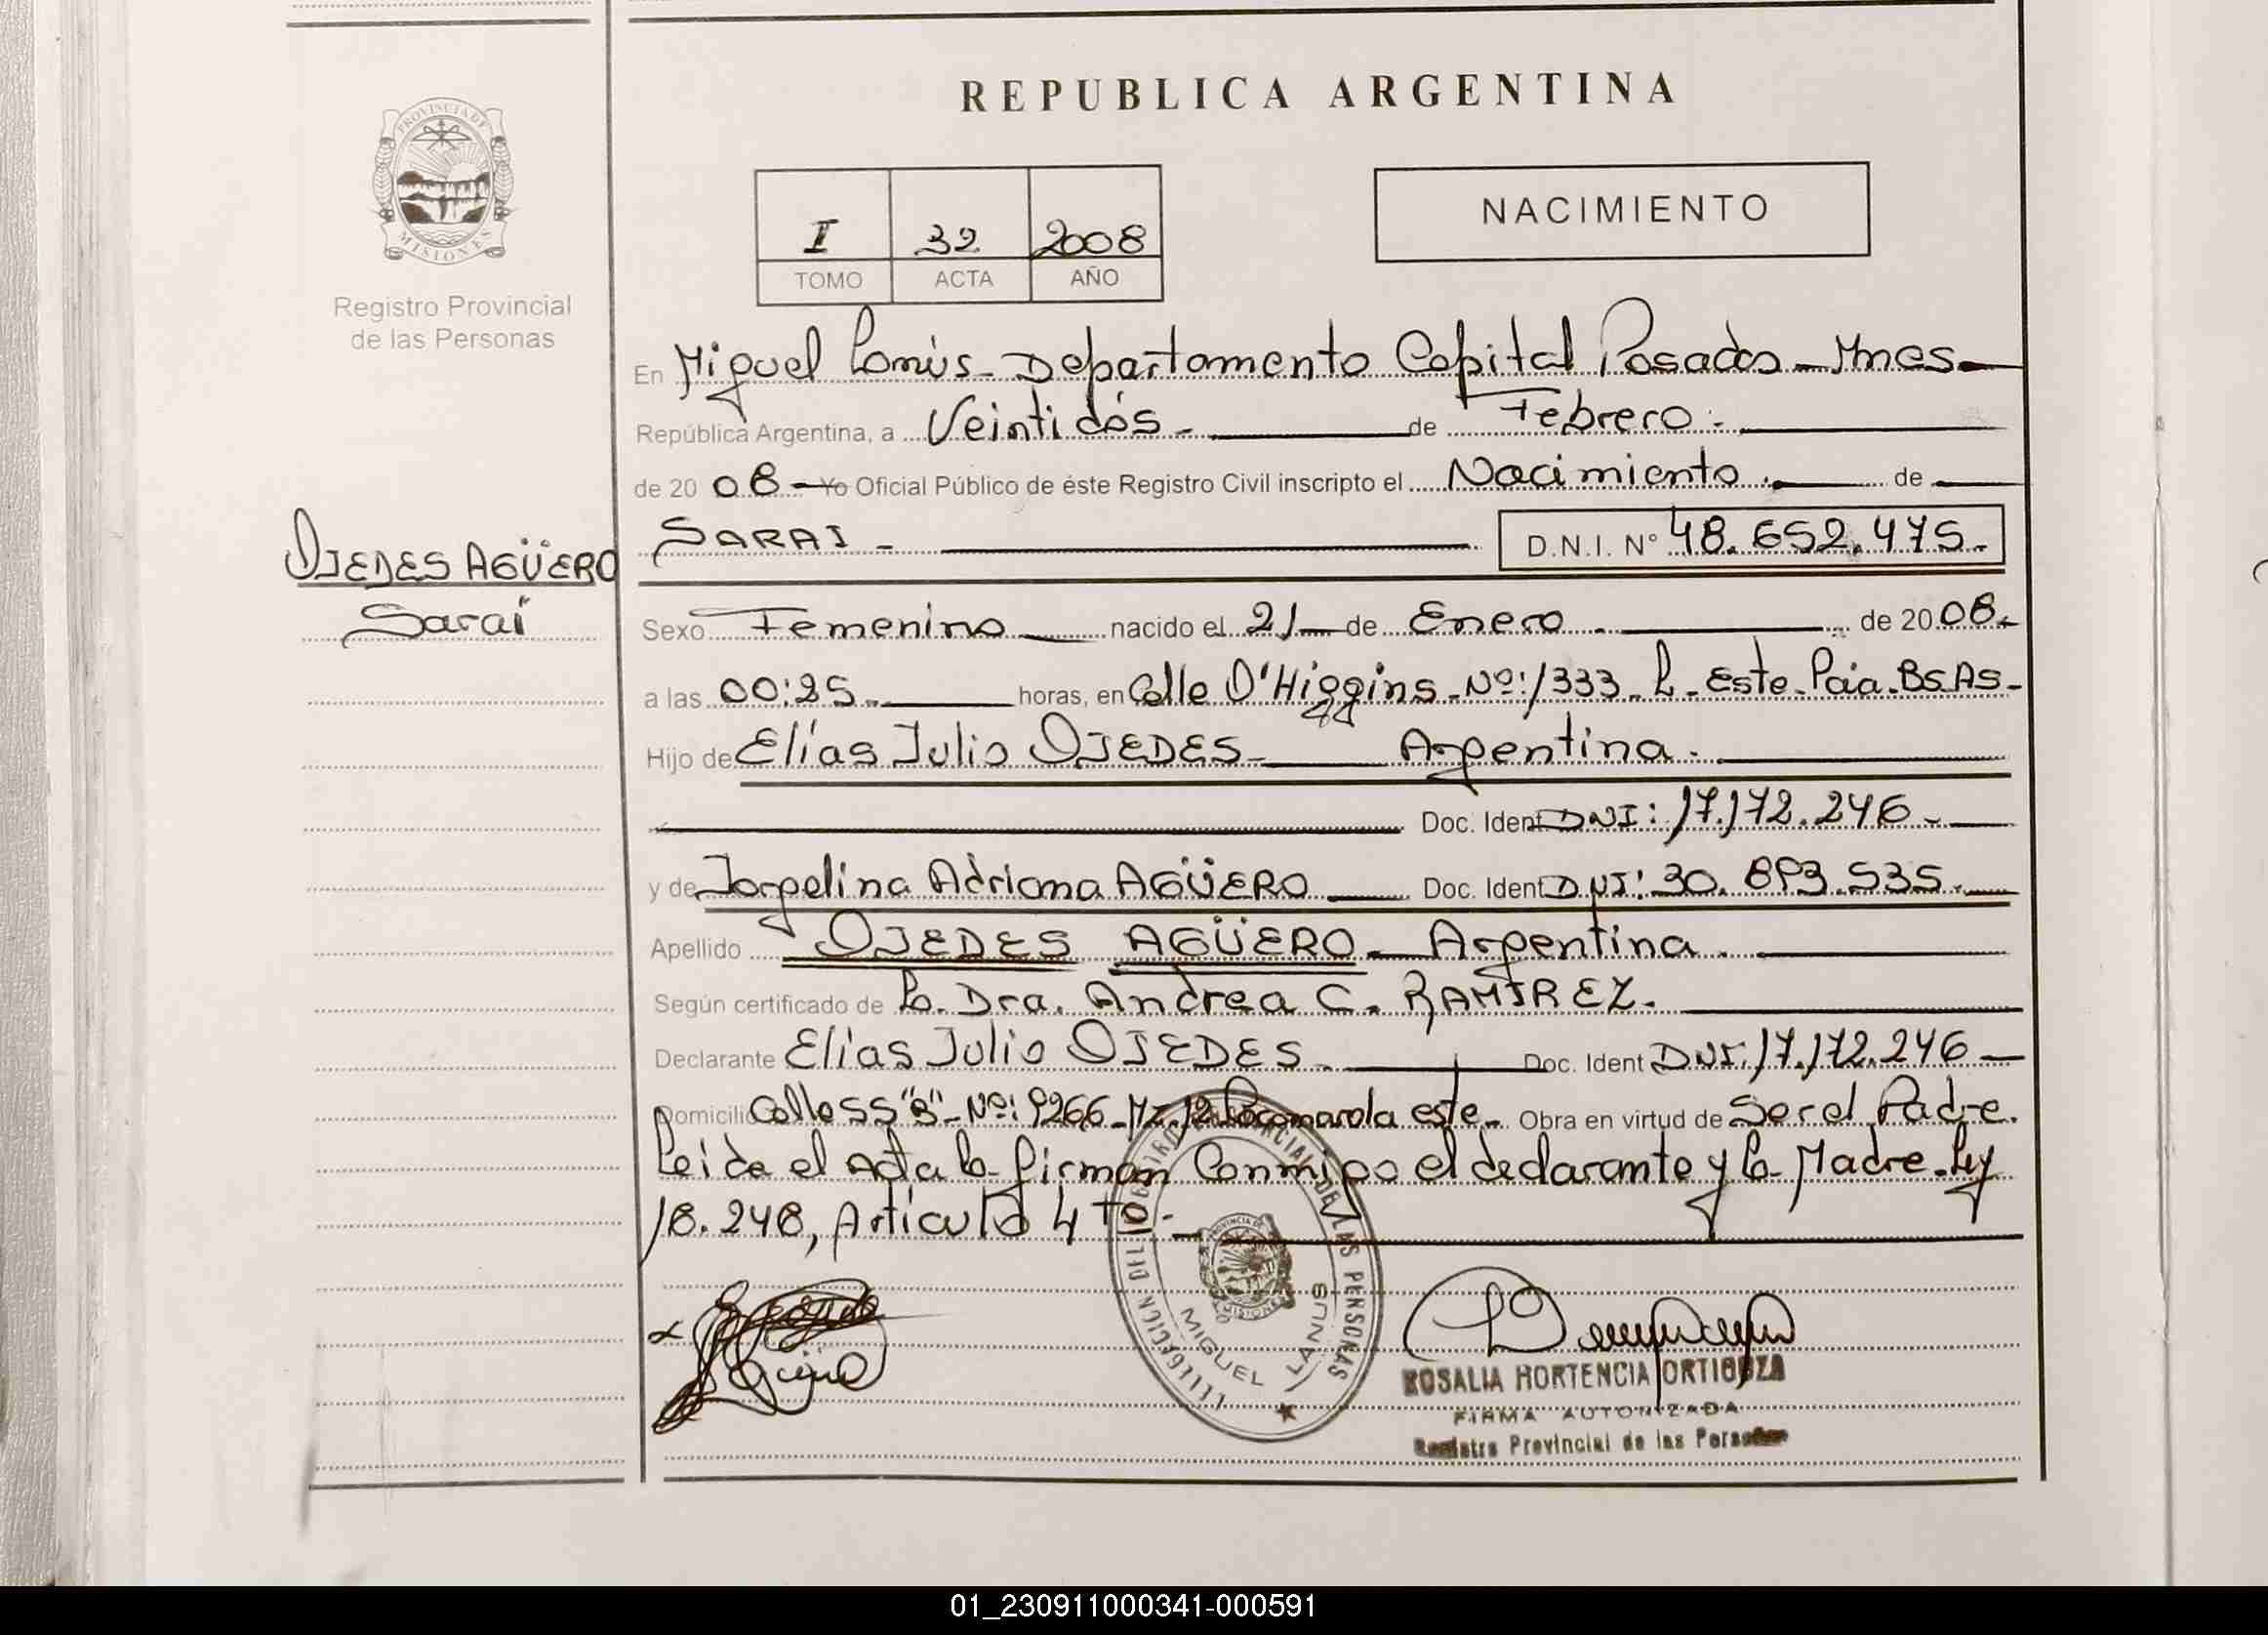 REPUBLICA ARGENTINA
PROVINCIA DE MISIONES
Registro Provincial
de las Personas
I 32 2008
TOMO ACTA AÑO
NACIMIENTO
En Miguel Lanús - Departamento Capital Posadas - Mnes -
República Argentina, a Veintidós - de Febrero . -
de 20 08 - Yo Oficial Público de éste Registro Civil inscripto el Nacimiento . - de
SARAI - D.N.I. Nº 48.652.475.-
OJEDES AGÜERO
Sarai
Sexo Femenino nacido el 21 - de Enero . - de 20 08. -
a las 00:25 . - horas, en Calle O'Higgins - Nº: 1333 - L - Este - Pcia - Bs As -
Hijo de Elías Julio OJEDES - Argentina . -
Doc. Ident DNI: 17.172.246 . -
y de Jorgelina Adriana AGÜERO Doc. Ident DNI: 30.893.535 . -
Apellido OJEDES AGÜERO - Argentina . -
Según certificado de la Dra. Andrea C. RAMIREZ . -
Declarante Elías Julio OJEDES . - Doc. Ident DNI: 17.172.246 -
Domicilio Calle 55 "B" - Nº: 9266 - Mz. 12 este - Obra en virtud de Ser el Padre.
Leida el Acta la firman Conmigo el declarante y la Madre - Ley
18.248, Artículo 4 to -
DEL REGISTRO PROVINCIAL DE LAS PERSONAS
PROVINCIA DE MISIONES
MIGUEL LANUS
ROSALIA HORTENCIA ORTIGOZA
FIRMA AUTORIZADA
Registro Provincial de las Personas
01_230911000341-000591